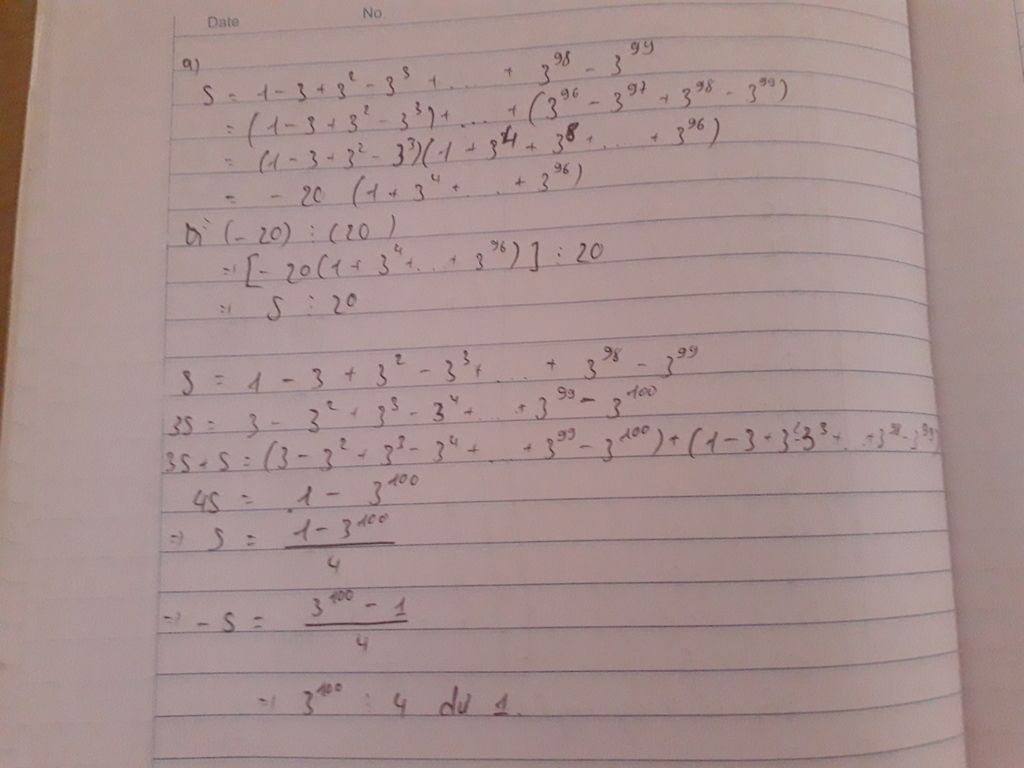 Date No
a)
S = 1 - 3 + 3² - 3³ + ... + 3⁹⁸ - 3⁹⁹
= (1 - 3 + 3² - 3³) + ... + (3⁹⁶ - 3⁹⁷ + 3⁹⁸ - 3⁹⁹)
= (1 - 3 + 3² - 3³)(1 + 3⁴ + 3⁸ + ... + 3⁹⁶)
= - 20 (1 + 3⁴ + ... + 3⁹⁶)
Vì (- 20) ⋮ (20)
⇒ [- 20(1 + 3⁴ + ... + 3⁹⁶)] ⋮ 20
⇒ S ⋮ 20
S = 1 - 3 + 3² - 3³ + ... + 3⁹⁸ - 3⁹⁹
3S = 3 - 3² + 3³ - 3⁴ + ... + 3⁹⁹ - 3¹⁰⁰
3S + S = (3 - 3² + 3³ - 3⁴ + ... + 3⁹⁹ - 3¹⁰⁰) + (1 - 3 + 3² - 3³ + ... + 3⁹⁸ - 3⁹⁹)
4S = 1 - 3¹⁰⁰
⇒ S = (1 - 3¹⁰⁰)/4
⇒ - S = (3¹⁰⁰ - 1)/4
⇒ 3¹⁰⁰ : 4 dư 1.